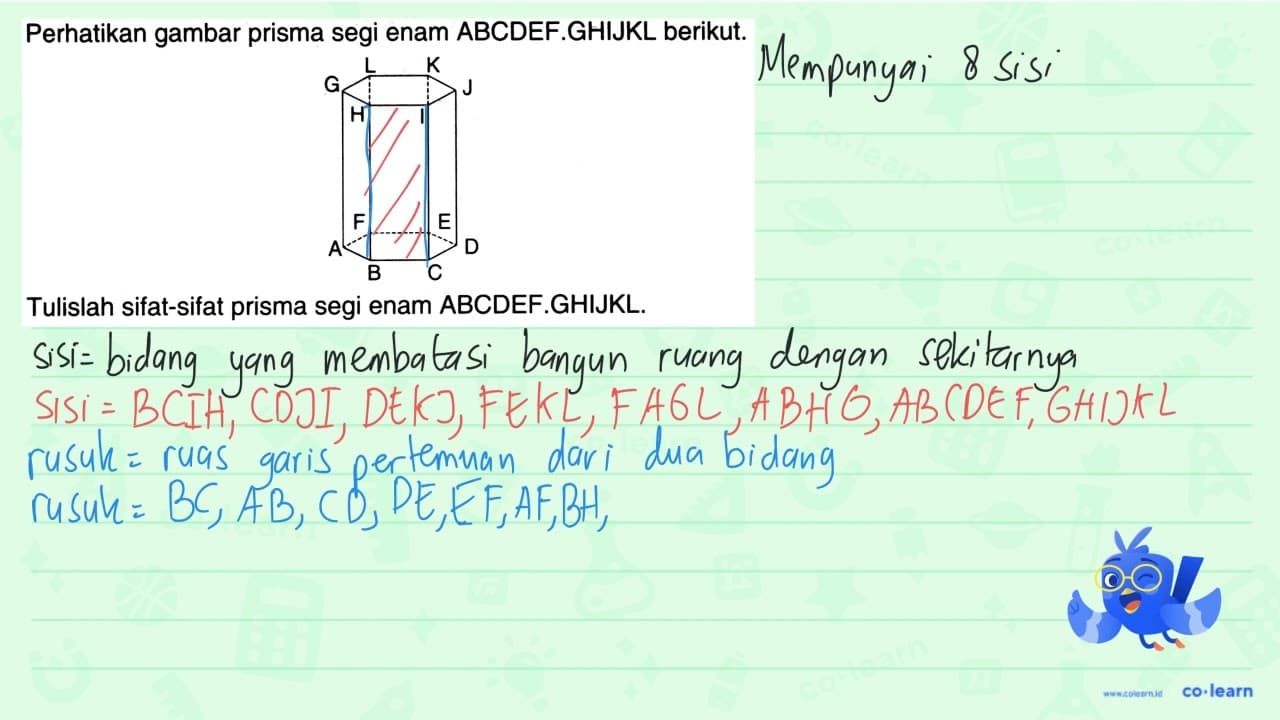 Perhatikan gambar prisma segi enam ABCDEF.GHIJKL berikut.
Mempunyai 8 sisi
L K
G J
H I
F E
A D
B C
Tulislah sifat-sifat prisma segi enam ABCDEF.GHIJKL.
sisi= bidang yang membatasi bangun ruang dengan sekitarnya
sisi = BCIH, CDJI, DEKJ, FEKL, FAGL, ABHG, ABCDEF, GHIJKL
rusuk = ruas garis pertemuan dari dua bidang
rusuk = BC, AB, CD, DE, EF, AF, BH,
www.colearn.id co·learn